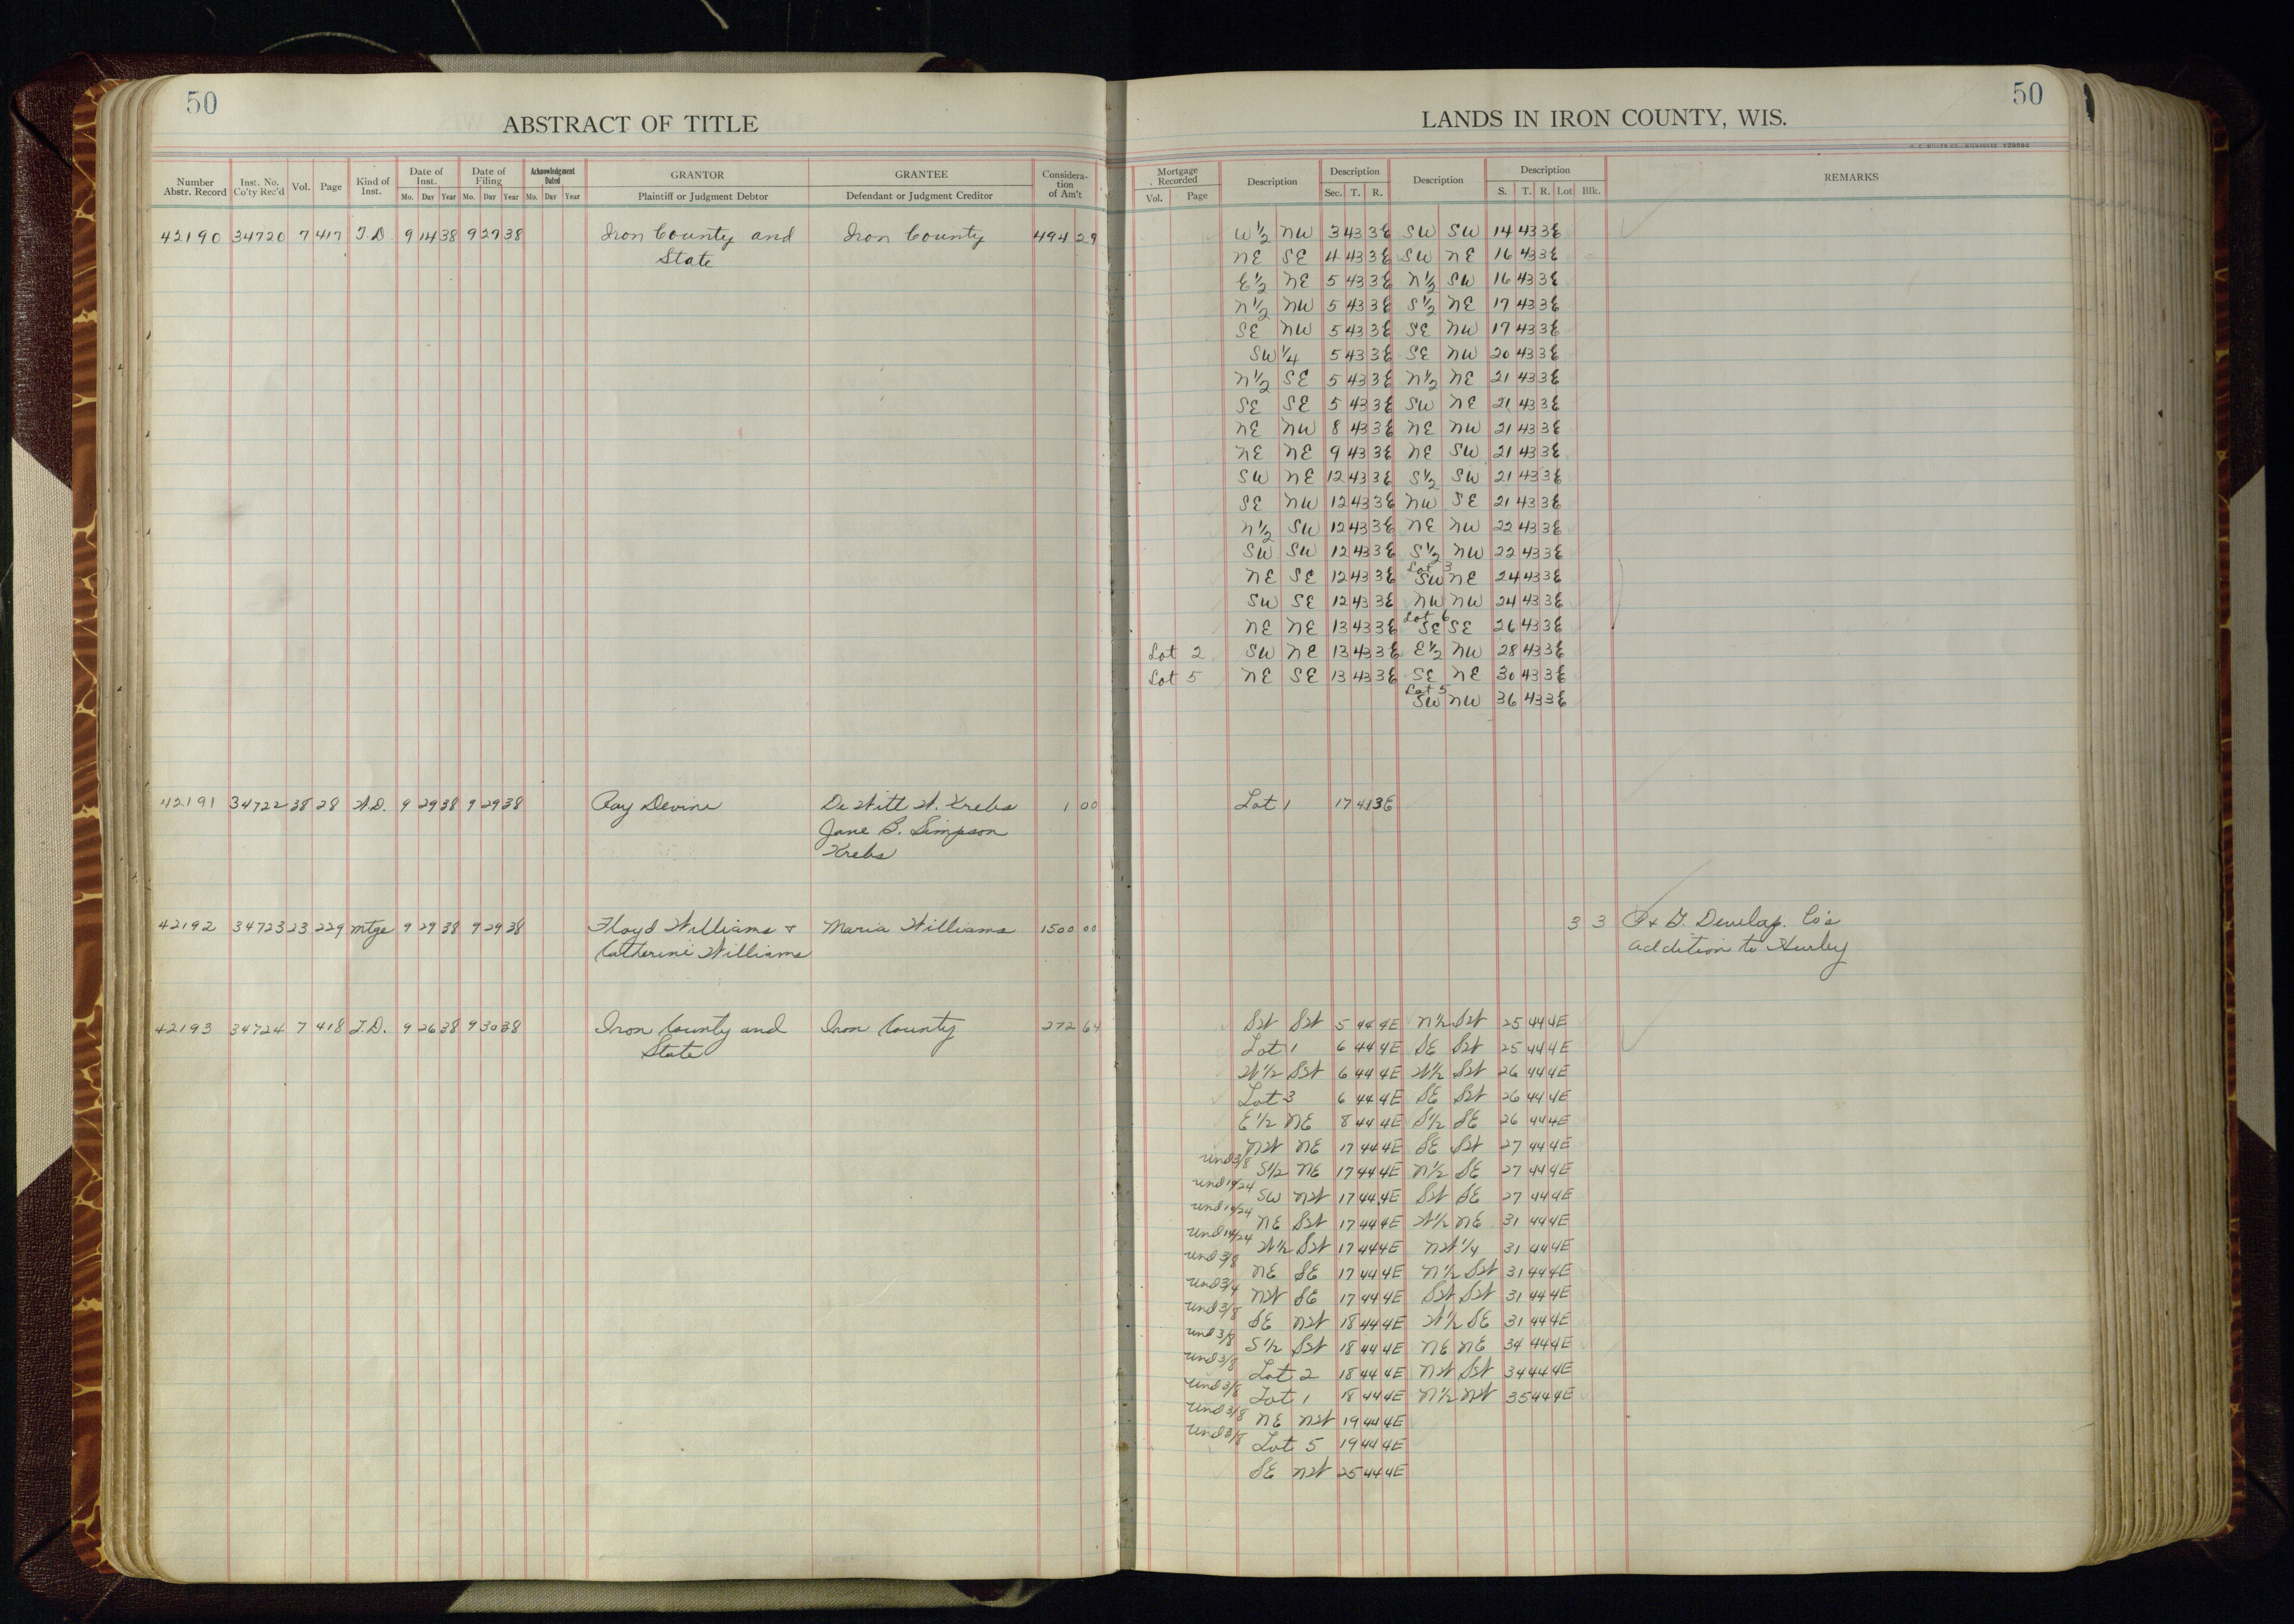 50
ABSTRACT OF TITLE
Number Abstr. Record Inst. No. Co'ty Rec'd Vol. Page Kind of Inst. Date of Inst. Mo. Day Year Date of Filing Mo. Day Year Acknowledgment Dated Mo. Day Year GRANTOR Plaintiff or Judgment Debtor GRANTEE Defendant or Judgment Creditor Considera- tion of Am't
42190 34720 7 417 T.D 9 14 38 9 27 38 Iron County and Iron County 494 29
State
42191 34722 38 28 W.D. 9 29 38 9 29 38 Ray Devine De Witt W. Krebs 1 00
Jane B. Simpson
Krebs
42192 34723 23 229 mtge 9 29 38 9 29 38 Floyd Williams + Maria Williams 1500 00
Catherine Williams
42193 34724 7 418 T.D. 9 26 38 9 30 38 Iron County and Iron County 272 64
State
50
LANDS IN IRON COUNTY, WIS.
H. C. MILLER CO., MILWAUKEE Y28694
Mortgage Recorded Vol. Page Description Description Sec. T. R. Description Description S. T. R. Lot Blk. REMARKS
W 1/2 NW 3 43 3E SW SW 14 43 3E
NE SE 4 43 3E SW NE 16 43 3E
E 1/2 NE 5 43 3E N 1/2 SW 16 43 3E
N 1/2 NW 5 43 3E S 1/2 NE 17 43 3E
SE NW 5 43 3E SE NW 17 43 3E
SW 1/4 5 43 3E SE NW 20 43 3E
N 1/2 SE 5 43 3E N 1/2 NE 21 43 3E
SE SE 5 43 3E SW NE 21 43 3E
NE NW 8 43 3E NE NW 21 43 3E
NE NE 9 43 3E NE SW 21 43 3E
SW NE 12 43 3E S 1/2 SW 21 43 3E
SE NW 12 43 3E NW SE 21 43 3E
N 1/2 SW 12 43 3E NE NW 22 43 3E
SW SW 12 43 3E S 1/2 NW 22 43 3E
NE SE 12 43 3E Lot 3 SW NE 24 43 3E
SW SE 12 43 3E NW NW 24 43 3E
NE NE 13 43 3E Lot 6 SE SE 26 43 3E
Lot 2 SW NE 13 43 3E E 1/2 NW 28 43 3E
Lot 5 NE SE 13 43 3E SE NE 30 43 3E
Lot 5 SW NW 36 43 3E
Lot 1 17 41 3E
3 3 P. & G. Develop. Co's
addition to Hurley
SW SW 5 44 4E N 1/2 SW 25 44 4E
Lot 1 6 44 4E SE SW 25 44 4E
W 1/2 SW 6 44 4E W 1/2 SW 26 44 4E
Lot 3 6 44 4E SE SW 26 44 4E
E 1/2 NE 8 44 4E S 1/2 SE 26 44 4E
NW NE 17 44 4E SE SW 27 44 4E
und 3/8 S 1/2 NE 17 44 4E N 1/2 SE 27 44 4E
und 14/24 SW NW 17 44 4E SW SE 27 44 4E
und 14/24 NE SW 17 44 4E W 1/2 NE 31 44 4E
und 14/24 W 1/2 SW 17 44 4E NW 1/4 31 44 4E
und 3/8 NE SE 17 44 4E N 1/2 SW 31 44 4E
und 3/4 NW SE 17 44 4E SW SW 31 44 4E
und 3/8 SE NW 18 44 4E W 1/2 SE 31 44 4E
und 3/8 S 1/2 SW 18 44 4E NE NE 34 44 4E
und 3/8 Lot 2 18 44 4E NW SW 34 44 4E
und 3/8 Lot 1 18 44 4E N 1/2 NW 35 44 4E
und 3/8 NE NW 19 44 4E
und 3/8 Lot 5 19 44 4E
SE NW 25 44 4E